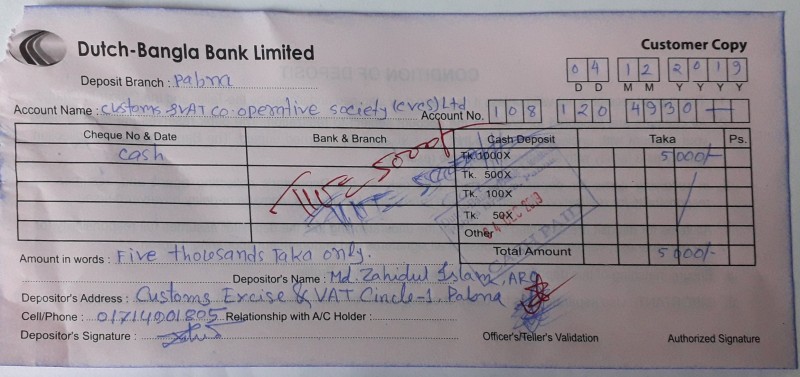 Dutch-Bangla Bank Limited
Customer Copy
Deposit Branch : Pabna
04 12 2019
D D M M Y Y Y Y
Account Name : Customs & VAT co-operative society (cvcs) Ltd
Account No. 108 120 4930
Cheque No & Date Bank & Branch Cash Deposit Taka Ps.
cash Tk. 1000X 5000/-
Tk. 500X
Tk. 100X
Tk. 50X
Other
Total Amount 5000/-
Amount in words : Five thousands Taka only.
Depositor's Name : Md. Zahidul Islam, ARO
Depositor's Address : Customs Excise & VAT Circle-1, Pabna
Cell/Phone : 01714001805 Relationship with A/C Holder :
Depositor's Signature :
Officer's/Teller's Validation
Authorized Signature